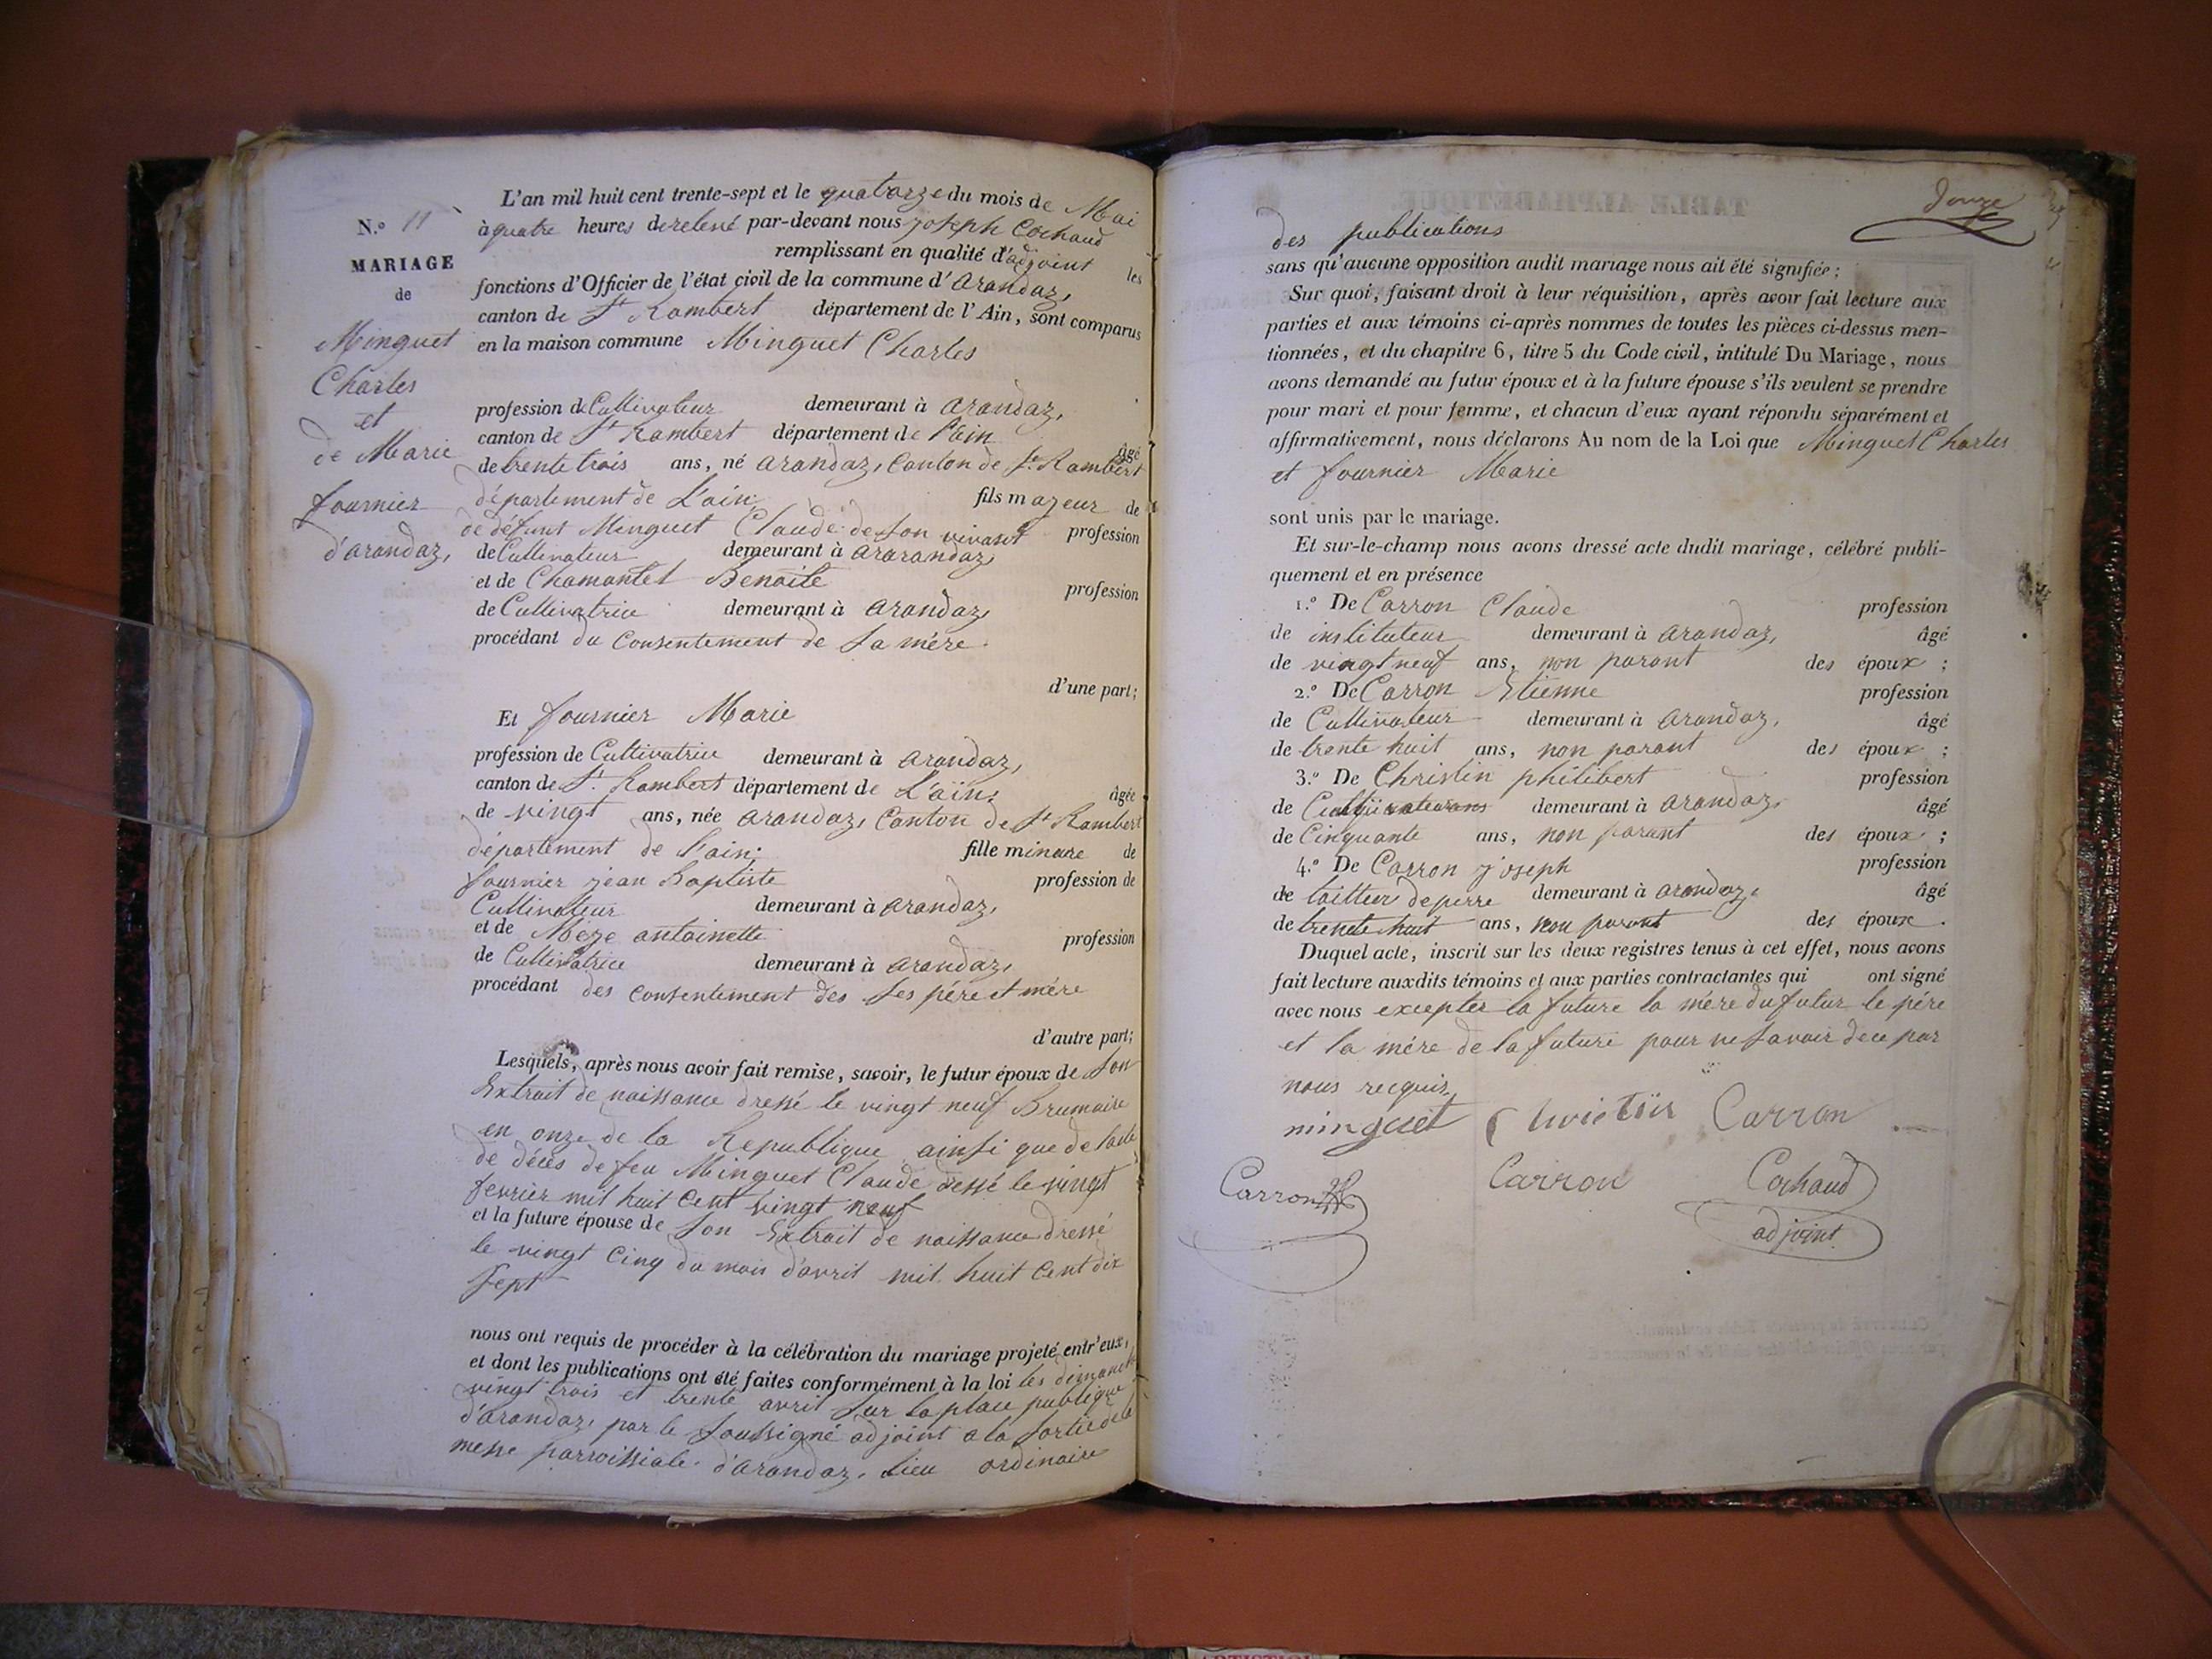 N.º 11
MARIAGE
de
Minguet
Charles
et
de Marie
fournier
d'arandaz,
L'an mil huit cent trente-sept et le quatorze du mois de Mai
à quatre heures de relevé par-devant nous joseph Cochaud
remplissant en qualité d'adjoint les
fonctions d'Officier de l'état civil de la commune d'arandaz,
canton de St Rambert département de l'Ain, sont comparus
en la maison commune Minguet Charles
profession de Cultivateur demeurant à arandaz,
canton de St Rambert département de l'ain âgé
de trente trois ans, né arandaz, Canton de St. Rambert
département de L'ain; fils majeur de
de défunt Minguet Claude de son vivant profession
de Cultivateur demeurant à ararandaz,
et de Chamantet Benoite profession
de Cultivatrice demeurant à arandaz,
procédant du Consentement de sa mère
d'une part;
Et fournier Marie
profession de Cultivatrice demeurant à arandaz,
canton de St. Rambert département de L'ain, âgée
de vingt ans, née arandaz, Canton de St Rambert
département de l'ain; fille mineure de
fournier jean Baptiste profession de
Cultivateur demeurant à arandaz,
et de antoinette profession
de Cultivatrice demeurant à arandaz,
procédant des consentement des ses père et mère
d'autre part;
Lesquels, après nous avoir fait remise, savoir, le futur époux de son
Extrait de naissance dressé le vingt neuf Brumaire
en onze de la Republique ainsi que de l'acte
de décès de feu Minguet Claude dressé le vingt
fevrier mil huit Cent vingt neuf
et la future épouse de son Extrait de naissance dressé
le vingt Cinq du mois d'avril mil huit Cent dix
sept
nous ont requis de procéder à la célébration du mariage projeté entr'eux,
et dont les publications ont été faites conformément à la loi les dimanche
vingt trois et trente avril sur la place publique
d'arandaz, par le soussigné adjoint a la sortie de la
messe parroissiale d'arandaz, lieu ordinaire
douze
des publications
sans qu'aucune opposition audit mariage nous ait été signifiée;
Sur quoi, faisant droit à leur réquisition, après avoir fait lecture aux
parties et aux témoins ci-après nommes de toutes les pièces ci-dessus men-
tionnées, et du chapitre 6, titre 5 du Code civil, intitulé Du Mariage, nous
avons demandé au futur époux et à la future épouse s'ils veulent se prendre
pour mari et pour femme, et chacun d'eux ayant répondu séparément et
affirmativement, nous déclarons Au nom de la Loi que Minguet Charles
et fournier Marie
sont unis par le mariage.
Et sur-le-champ nous avons dressé acte dudit mariage, célébré publi-
quement et en présence
1.º De Carron Claude profession
de instituteur demeurant à arandaz, âgé
de vingt neuf ans, non parant des époux;
2.º De Carron Etienne profession
de Cultivateur demeurant à arandaz, âgé
de trente huit ans, non parant des époux;
3.º De Christin philibert profession
de demeurant à arandaz, âgé
de Cinquante ans, non parant des époux;
4.º De Carron joseph profession
de tailleur de pierre demeurant à arandaz, âgé
de trente huit ans, non parant des époux.
Duquel acte, inscrit sur les deux registres tenus à cet effet, nous avons
fait lecture auxdits témoins et aux parties contractantes qui ont signé
avec nous excepter la future la mère du futur le père
et la mére de la future pour ne savoir de ce par
nous requis,
minguet Carron
Carron Carron Cochaud
adjoint